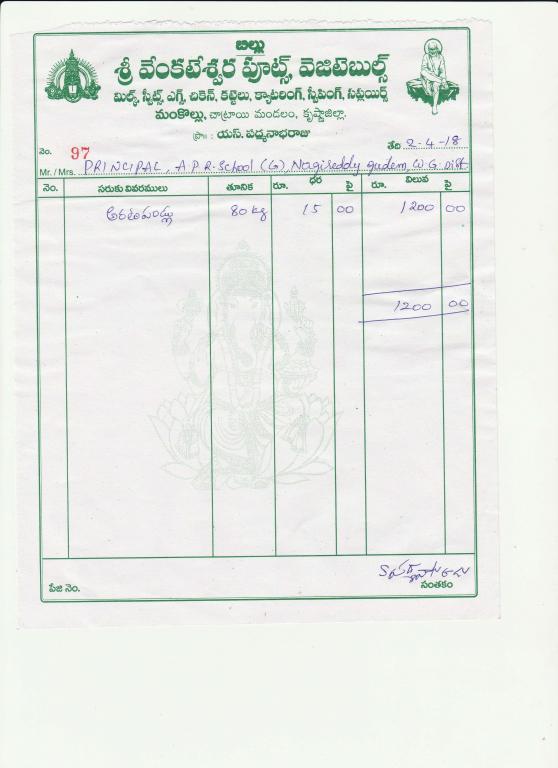 బిల్లు
శ్రీ వేంకటేశ్వర ఫూట్స్, వెజిటెబుల్స్
మిల్క్, స్వీట్స్, ఎగ్స్, చికెన్, కట్టెలు, క్యాటరింగ్, స్వీపింగ్, సప్లయర్స్
మంకొల్లు, చాట్రాయి మండలం, కృష్ణాజిల్లా.
ప్రొ॥ : యస్. పద్మనాభరాజు
నెం. 97 తేది 2-4-18
Mr. / Mrs. PRINCIPAL, A P R-School (G), Nagireddy gudem, W.G. Dist
నెం. సరుకు వివరములు తూనిక రూ. ధర పై రూ. విలువ పై
అరటిపండ్లు 80 kg 15 00 1200 00
1200 00
పేజి నెం. సంతకం